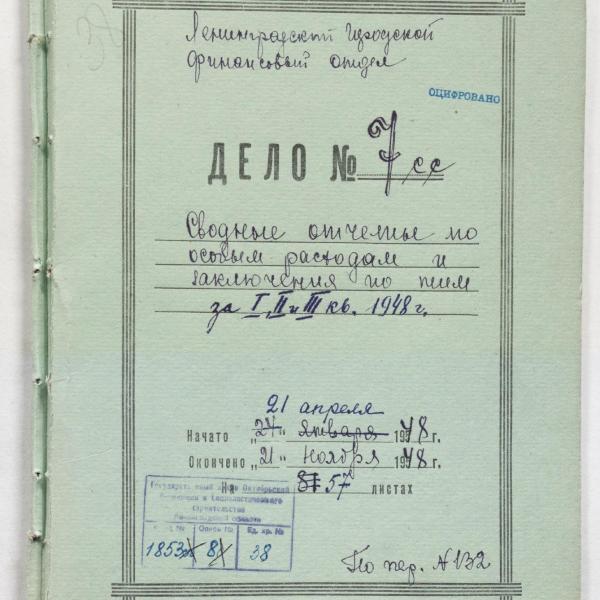 Ленинградский городской
финансовый отдел
ОЦИФРОВАНО
ДЕЛО № 7 сс
Сводные отчеты по
особым расходам и
заключения по ним
за I, II и III кв. 1948 г.
21 апреля
Начато „24" января 1948 г.
Окончено „21" ноября 1948 г.
На 57 листах
Государственный Архив Октябрьской
Революции и Социалистического
строительства
Ленинградской области
Фонд № Опись № Ед. хр. №
1853 8 38
По пер. № 132